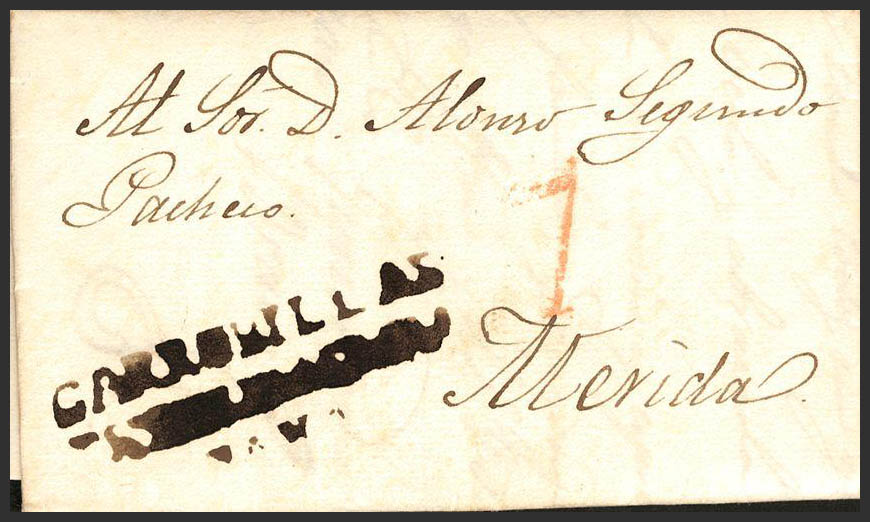 Al Sor. D. Alonzo Segundo
Pacheco.
1
GARROBILLAS
Merida